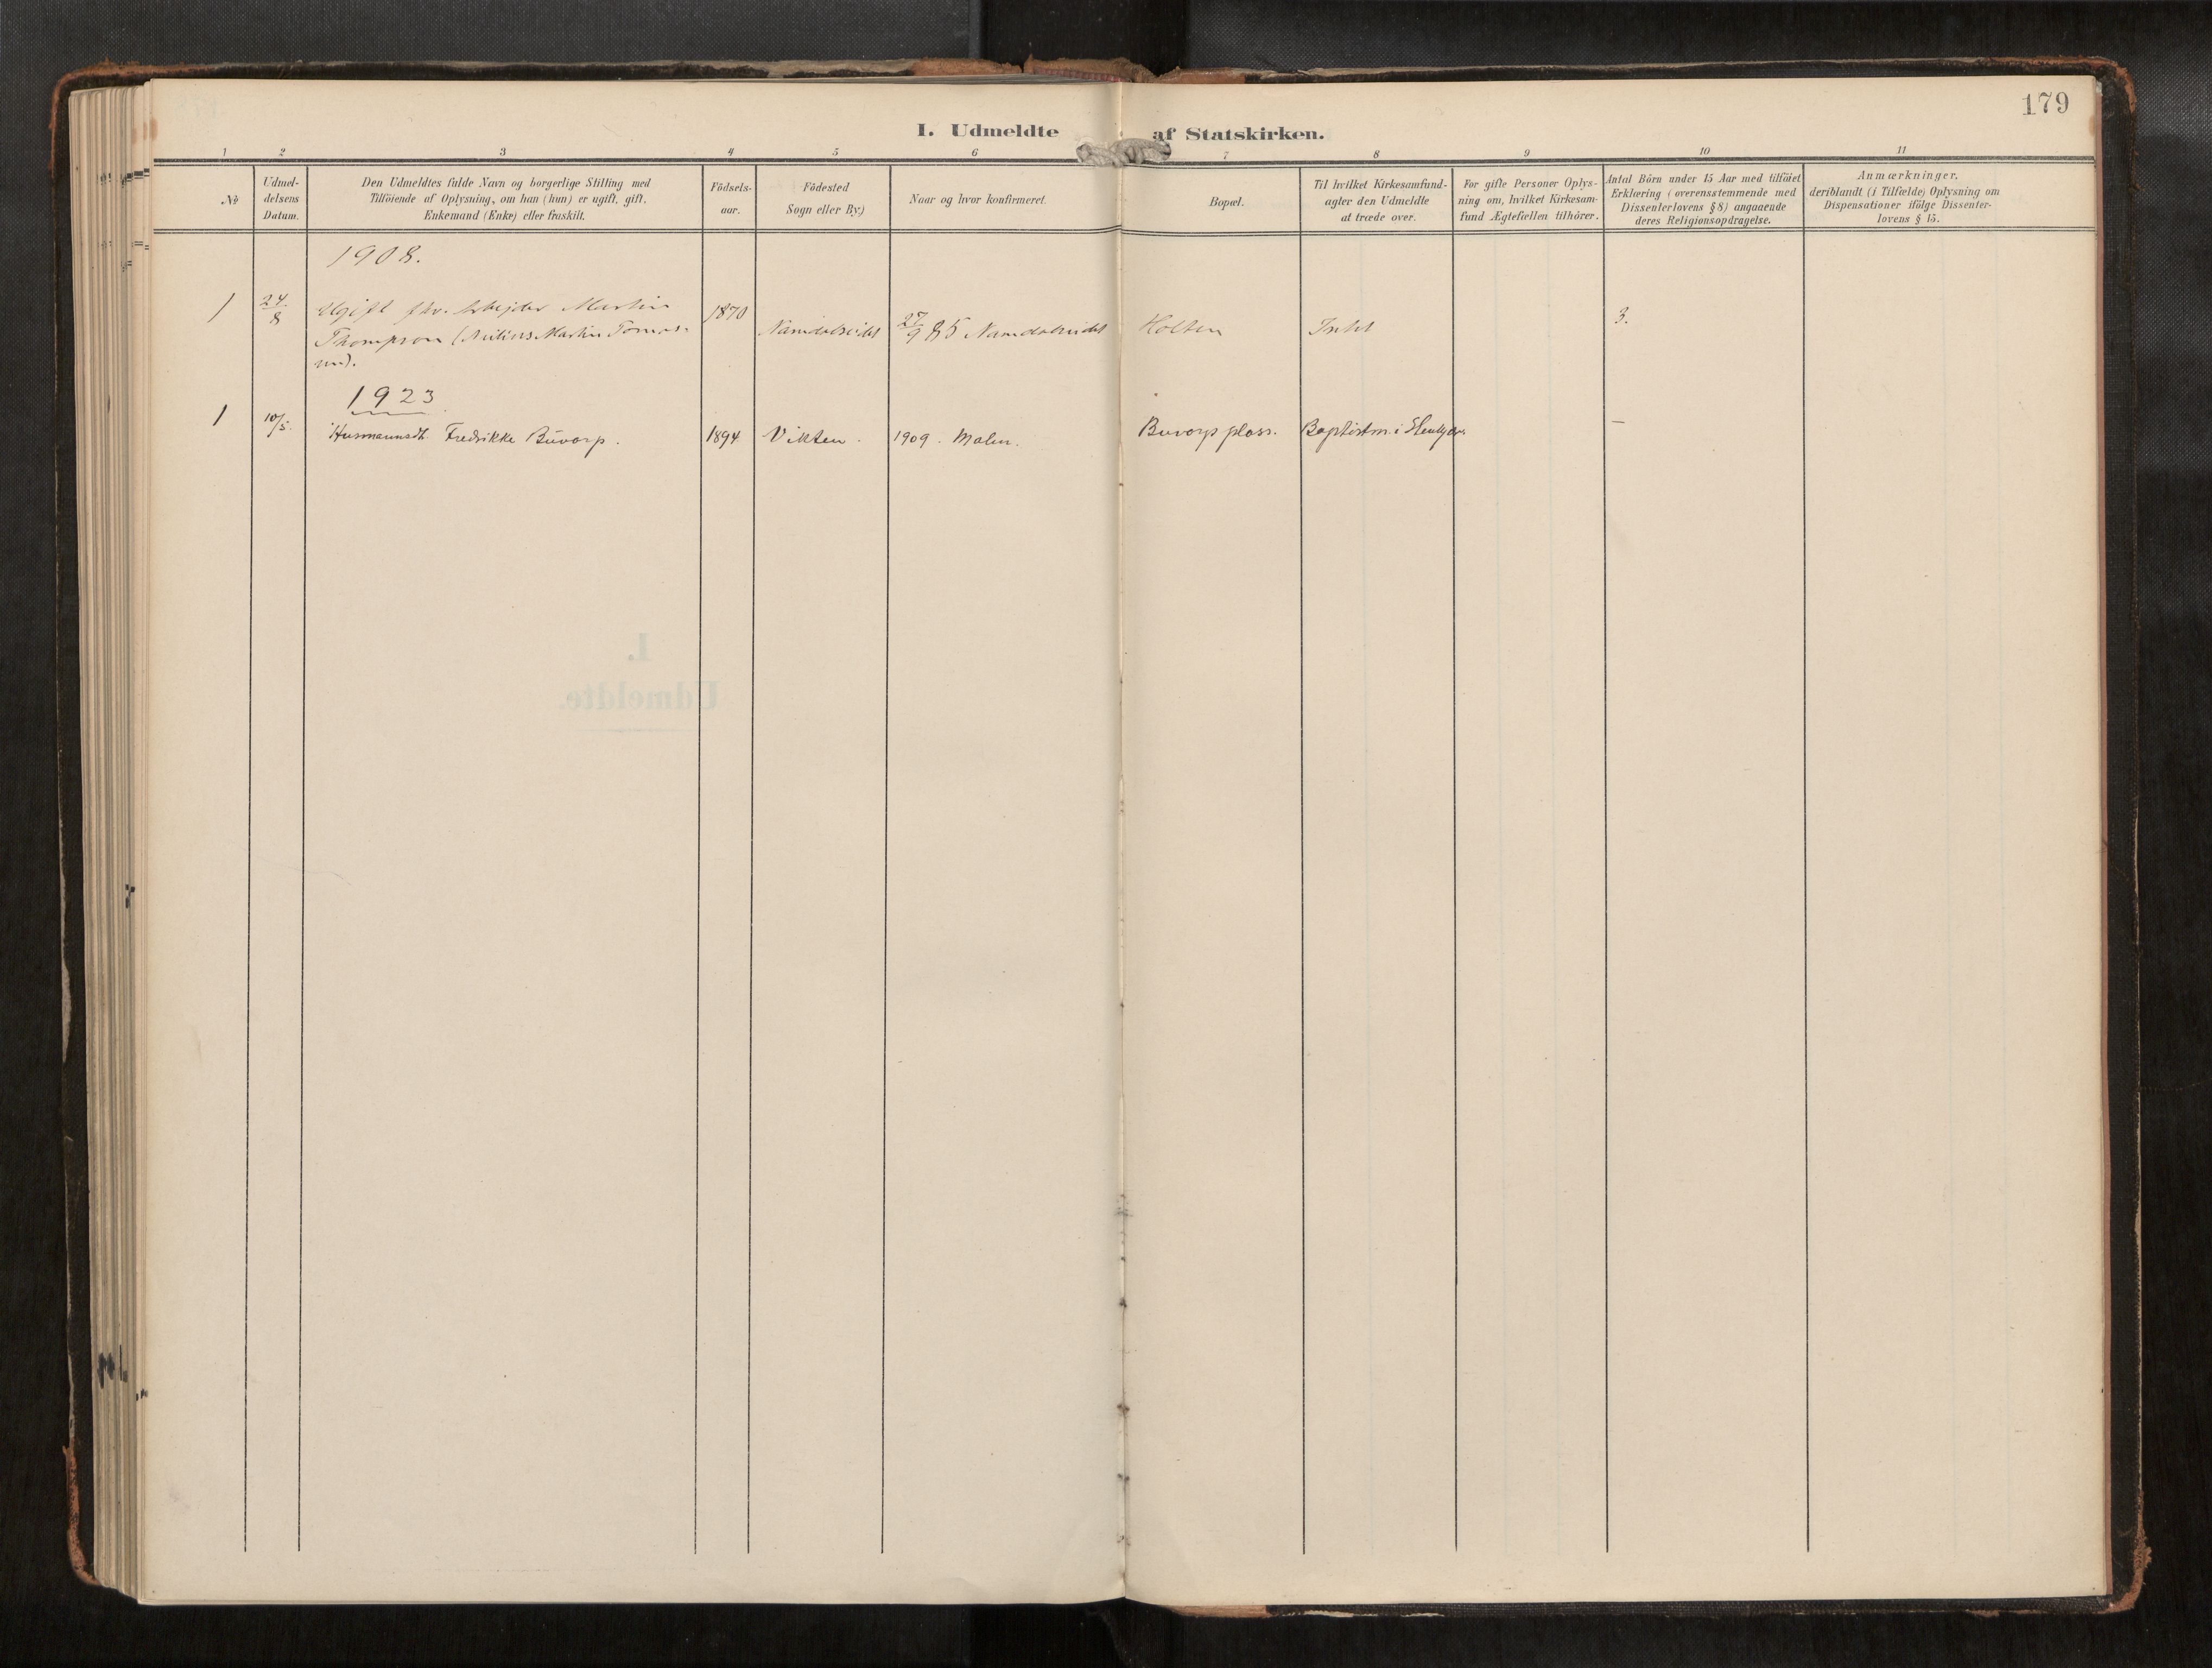 179
I. Udmeldte af Statskirken.
1 2 3 4 5 6 7 8 9 10 11
№
Udmel-
delsens
Datum.
Den Udmeldtes fulde Navn og borgerlige Stilling med
Tilföiende af Oplysning, om han (hun) er ugift, gift,
Enkemand (Enke) eller fraskilt.
Födsels-
aar.
Födested
Sogn eller By.)
Naar og hvor konfirmeret.
Bopæl.
Til hvilket Kirkesamfund-
agter den Udmeldte
at træde over.
For gifte Personer Oplys-
ning om, hvilket Kirkesam-
fund Ægtefællen tilhörer.
Antal Börn under 15 Aar med tilföiet
Erklæring (overensstemmende med
Dissenterlovens § 8) angaaende
deres Religionsopdragelse.
Anmærkninger,
deriblandt (i Tilfælde) Oplysning om
Dispensationer ifölge Dissenter-
lovens § 15.
1908.
1 24/8 Ugift fhv. Arbejder Martin 1870
Thompson ( Martin Tomas- Namdalseidet 27/9 85 Namdalseidet Holten Intet 3.
1923
1 10/5. Husmannsdt. Fredrikke Buvarp. 1894 Vikten. 1909. Malm. Buvarp plass. Baptistm. i –
I.
Udmeldte.